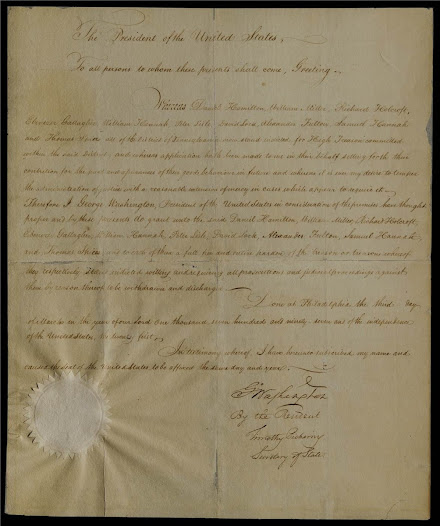 The President of the United States,
To all persons to whom these presents shall come, Greeting.
Whereas Daniel Hamilton, William Miller, Richard Holcroft,
Ebenezer Gallagher, William Hannah, Peter Lisle, David Lock, Alexander Fulton, Samuel Hannah
and Thomas Spiers all of the District of Pennsylvania now stand indicted for High Treason committed
within the said District; and whereas application hath been made to me in their behalf setting forth their
contrition for the past and of their in future and whereas it is ever my desire to temper
the administration of justice with a reasonable extension of mercy in cases which appear to require it.
Therefore I George Washington, President of the United States in consideration of the premises have thought
proper and by these presents do grant unto the said Daniel Hamilton, William Miller, Richard Holcroft,
Ebenezer Gallagher, William Hannah, Peter Lisle, David Lock, Alexander Fulton, Samuel Hannah
and Thomas Spiers and to each of them a full free and entire pardon of the treason whereof
they respectively stand indicted; willing and requiring all prosecutions and judicial proceedings against
them by reason thereof to be withdrawn and discharged.
Done at Philadelphia the third day
of March in the year of our Lord one thousand seven hundred and ninety seven and of the independence
of the United States, the twenty first.
In testimony whereof, I have hereunto subscribed my name and
caused the seal of the United States to be affixed the same day and year.
G Washington
By the President
Timothy Pickering
Secretary of State